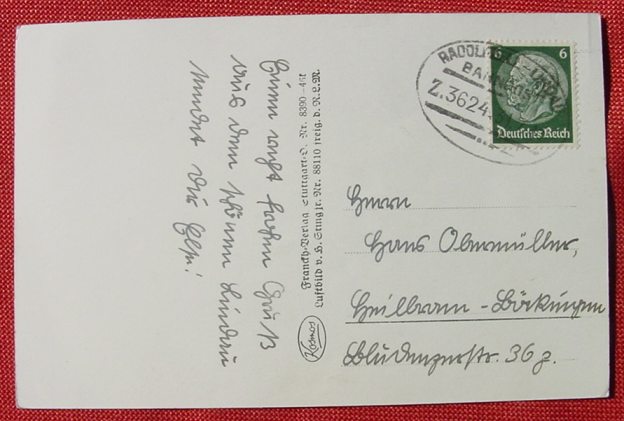 Einen recht frohen Gruß
aus dem schönen Lindau
sendet Dir Else!
Franckh-Verlag Stuttgart-O. Nr. 8390-4St
Luftbild v. H. Stingjr. Nr. 88110 freig. d. R.L.M.
Kosmos
RADOLFZELL - LINDAU
BAHNPOST
Z.3624
6
Deutsches Reich
Herrn
Hans Obermüller,
Heilbronn - Böckingen
Bludenzerstr. 36